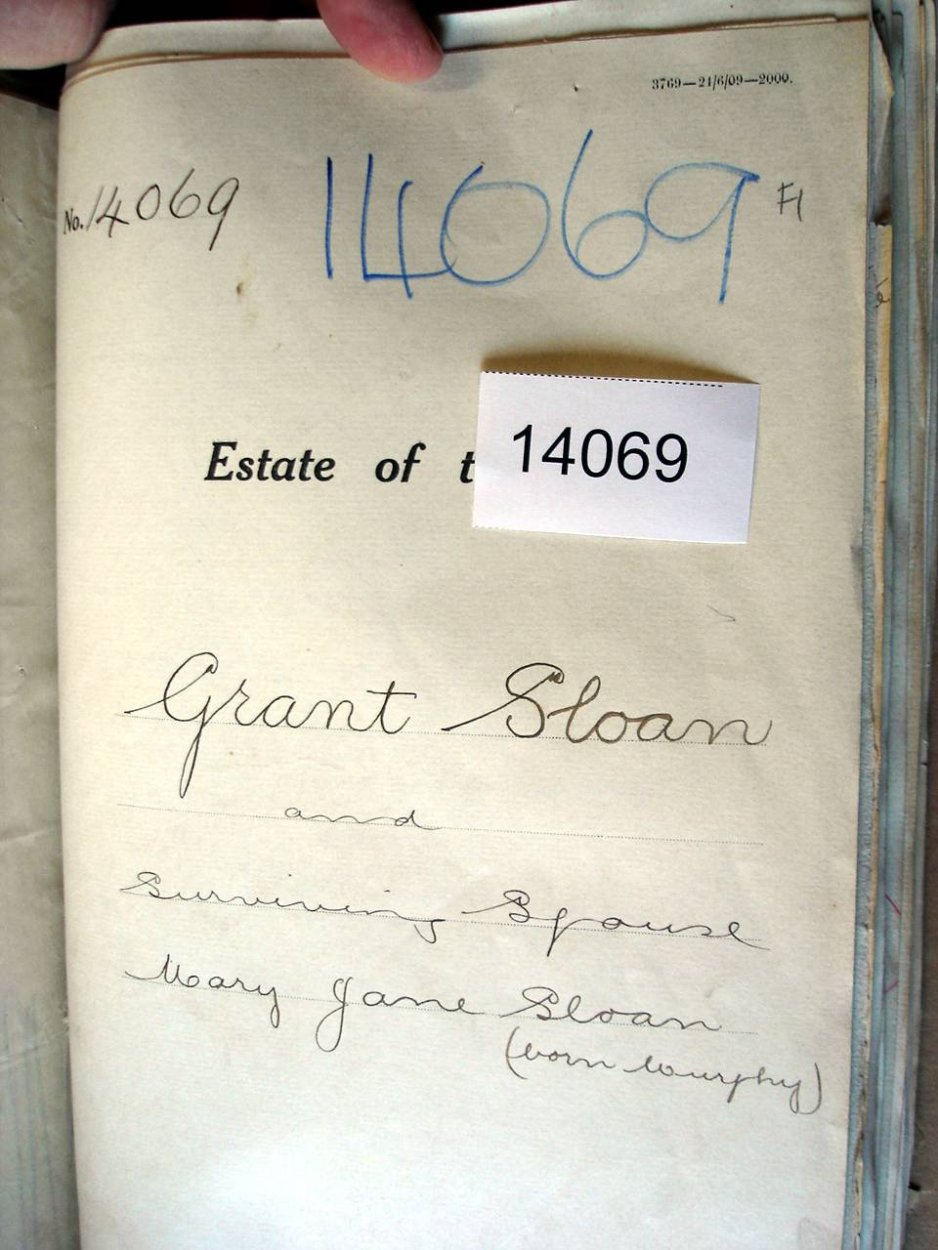 3769—21/6/09—2000.
No. 14069
14069
14069
Estate of t
Grant Sloan
and
Surviving Spouse
Mary Jane Sloan
(born Murphy)